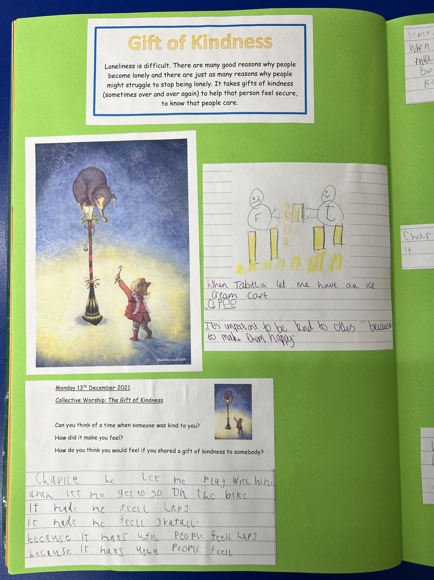 Gift of Kindness
Loneliness is difficult. There are many good reasons why people
become lonely and there are just as many reasons why people
might struggle to stop being lonely. It takes gifts of kindness
(sometimes over and over again) to help that person feel secure,
to know that people care.
F
t
When Tabitha let me have an Ice
Cream Cart
It's important to be kind to "because
to make them happy"
Monday 13th December 2021
Collective Worship: The Gift of Kindness
Can you think of a time when someone was kind to you?
How did it make you feel?
How do you think you would feel if you shared a gift of kindness to somebody?
Charlie he let me play with him
let me get to go On the bike
It made me feell hapy
it made me feell
because it maks uthu people feell hapy
because it maks uthu people feell
Some
When
Char
it